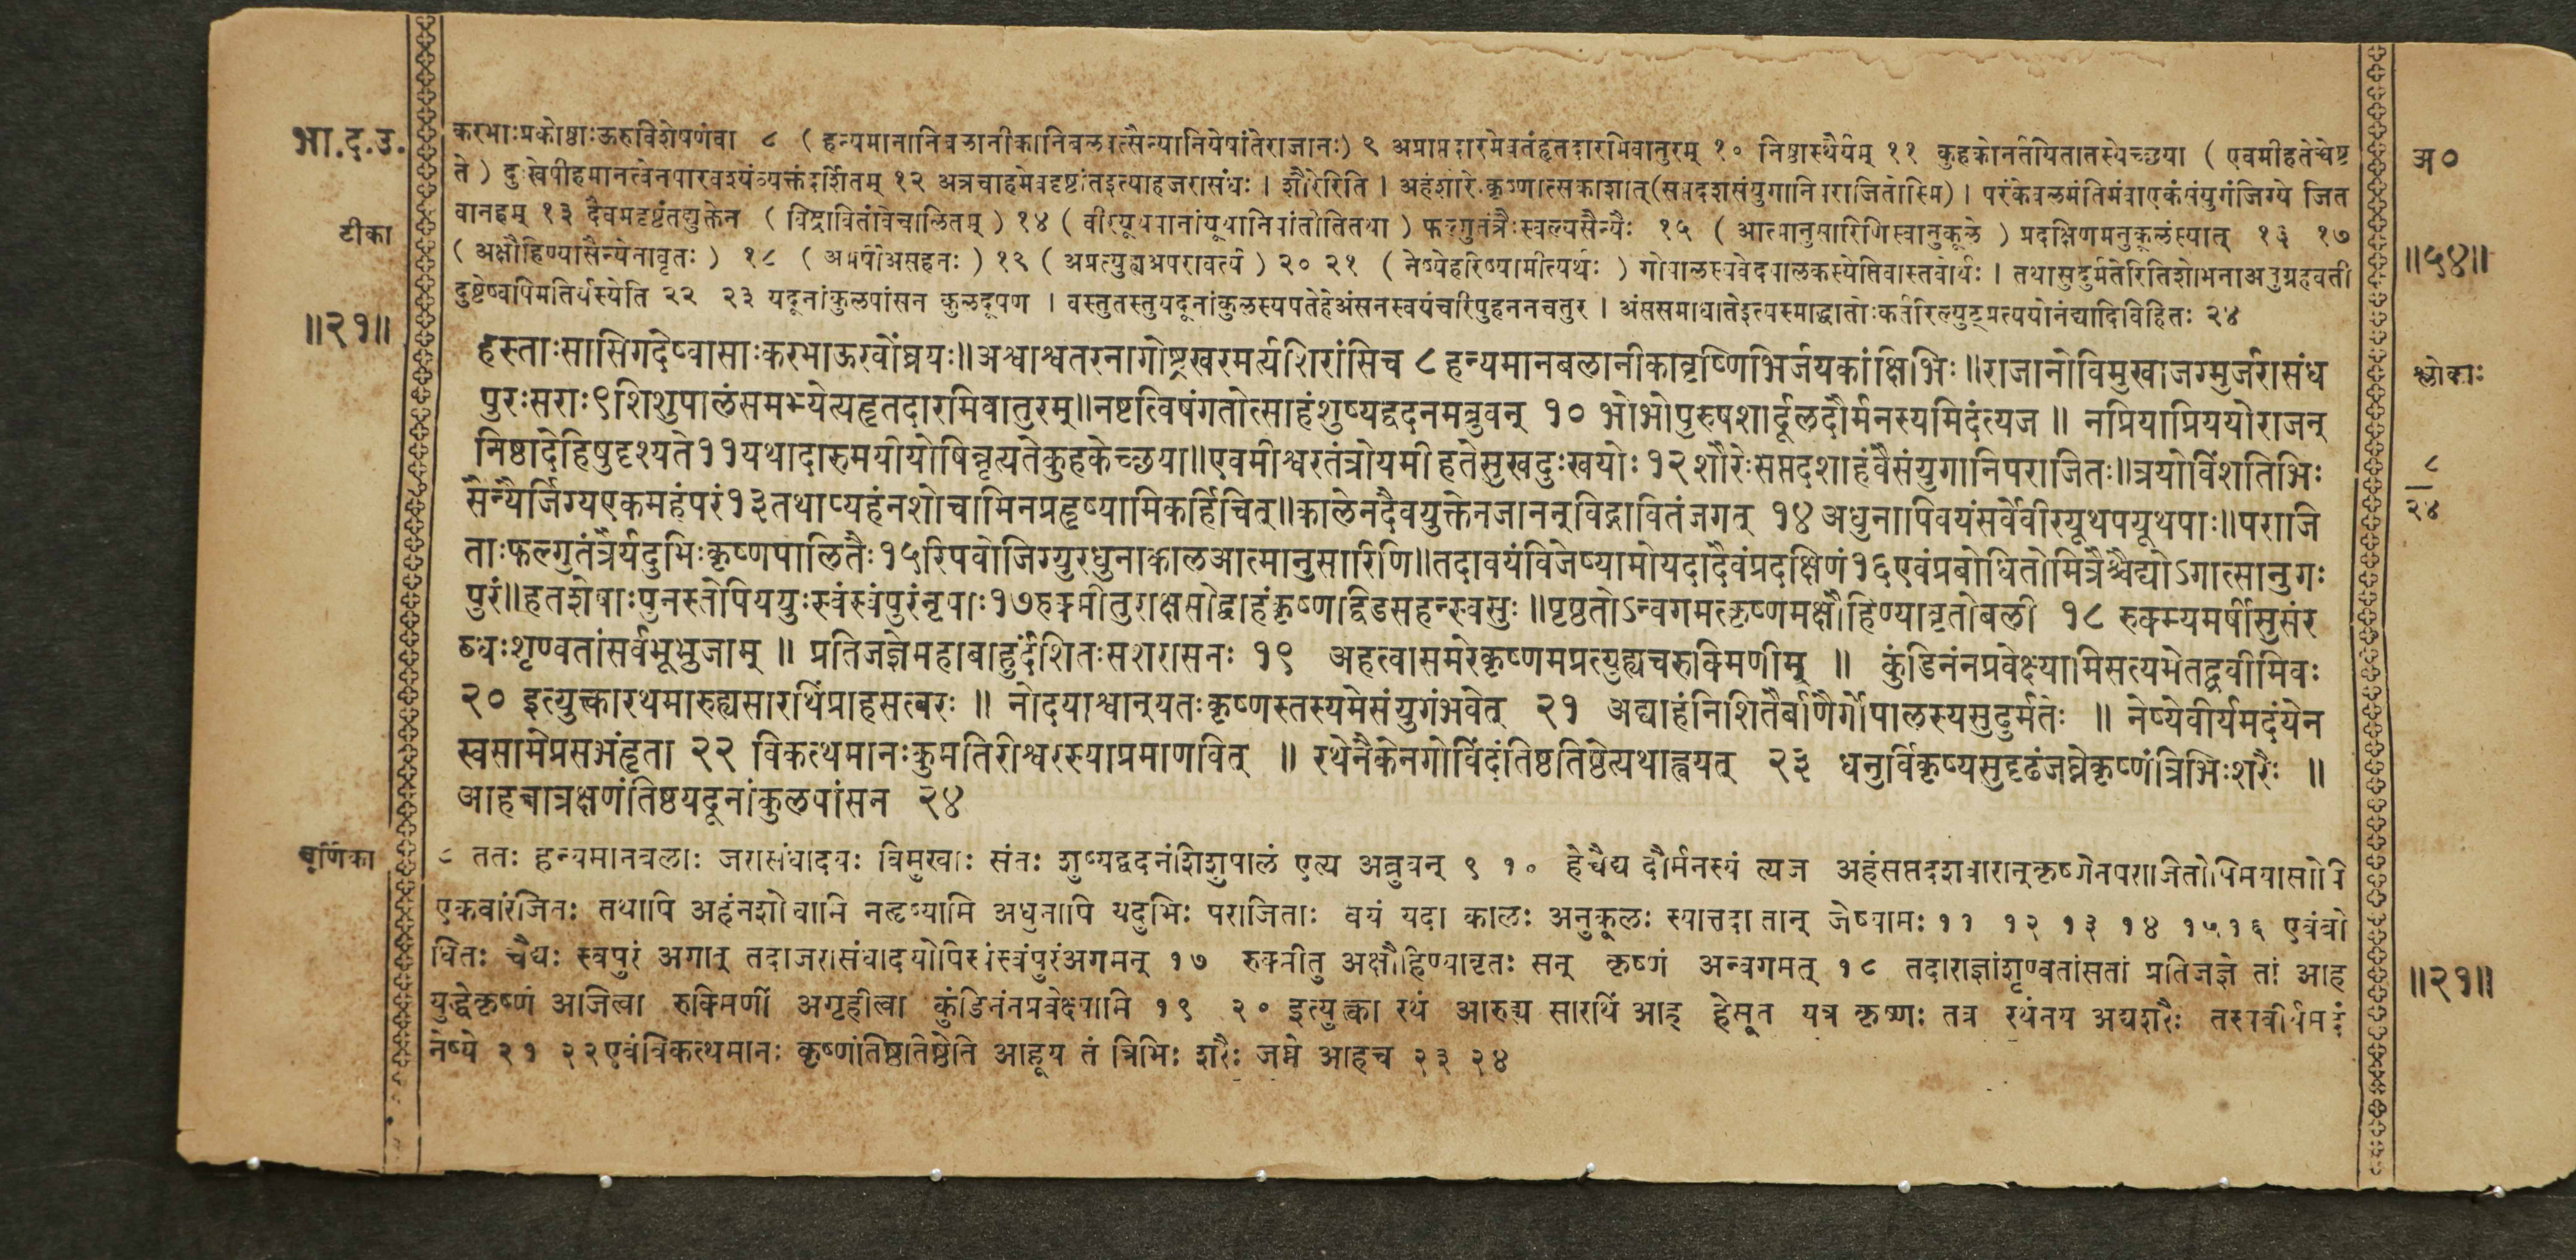 भा.द.उ.
टीका
॥२१॥
अ०
॥५४॥
करभाःप्रकोष्ठाःऊरुविशेषणंवा ८ ( हन्यमानानिबलानीकानिबलवत्सैन्यानियेषांतेराजानः) ९ अप्राप्तदारमेवतंहृतदारमिवातुरम् १० निष्ठास्थैर्यम् ११ कुहकोनर्तयितातस्येच्छया ( एवमीहतेचेष्ट
ते ) दुःखेपीहमानत्वेनपारवश्यंव्यक्तंदर्शितम् १२ अत्रचाहमेवदृष्टांतइत्याहजरासंधः । शौरेरिति । अहंशौरेःकृष्णात्सकाशात्(सप्तदशसंयुगानिपराजितोस्मि) । परंकेवलमंतिमंवाएकंसंयुगंजिग्ये जित
वानहम् १३ दैवमदृष्टंतद्युक्तेन ( विद्रावितंविचालितम् ) १४ ( वीरयूथपानांयूथानिपांतीतितथा ) फल्गुतंत्रैःस्वल्पसैन्यैः १५ ( आत्मानुसारिणिस्वानुकूले ) प्रदक्षिणमनुकूलंस्यात् १६ १७
( अक्षौहिण्यासैन्येनावृतः ) १८ ( अमर्षीअसहनः ) १९ ( अप्रत्युह्यअपरावर्त्य ) २० २१ ( नेष्येहरिष्यामीत्यर्थः ) गोपालस्यवेदपालकस्येतिवास्तवोर्थः । तथासुदुर्मतेरितिशोभनाअनुग्रहवती
दुष्टेष्वपिमतिर्यस्येति २२ २३ यदूनांकुलपांसन कुलदूषण । वस्तुतस्तुयदूनांकुलस्यपतेहेअंसनस्वयंचरिपुहननचतुर । अंससमाधातेइत्यस्माद्धातोःकर्तरिल्युट्प्रत्ययोनंद्यादिविहितः २४
हस्ताःसासिगदेष्वासाःकरभाऊरवोंघ्रयः॥अश्वाश्वतरनागोष्ट्रखरमर्त्यशिरांसिच ८ हन्यमानबलानीकावृष्णिभिर्जयकांक्षिभिः॥राजानोविमुखाजग्मुर्जरासंध
पुरःसराः९शिशुपालंसमभ्येत्यहृतदारमिवातुरम्॥नष्टत्विषंगतोत्साहंशुष्यद्वदनमब्रुवन् १० भोभोपुरुषशार्दूलदौर्मनस्यमिदंत्यज ॥ नप्रियाप्रिययोराजन्
निष्ठादेहिषुदृश्यते११यथादारुमयीयोषिन्नृत्यतेकुहकेच्छया॥एवमीश्वरतंत्रोयमीहतेसुखदुःखयोः१२शौरेःसप्तदशाहंवैसंयुगानिपराजितः॥त्रयोविंशतिभिः
सैन्यैर्जिग्यएकमहंपरं१३तथाप्यहंनशोचामिनप्रहृष्यामिकर्हिचित्॥कालेनदैवयुक्तेनजानन्विद्रावितंजगत् १४ अधुनापिवयंसर्वेवीरयूथपयूथपाः॥पराजि
ताःफल्गुतंत्रैर्यदुभिःकृष्णपालितैः१५रिपवोजिग्युरधुनाकालआत्मानुसारिणि॥तदावयंविजेष्यामोयदादैवंप्रदक्षिणं१६एवंप्रबोधितोमित्रैश्चैद्योऽगात्सानुगः
पुरं॥हतशेषाःपुनस्तेपिययुःस्वंस्वंपुरंनृपाः१७रुक्मीतुराक्षसोद्वाहंकृष्णद्विडसहन्स्वसुः॥पृष्ठतोऽन्वगमत्कृष्णमक्षौहिण्यावृतोबली १८ रुक्म्यमर्षीसुसंर
ब्धःशृण्वतांसर्वभूभुजाम् ॥ प्रतिजज्ञेमहाबाहुर्दंशितःसशरासनः १९ अहत्वासमरेकृष्णमप्रत्युह्यचरुक्मिणीम् ॥ कुंडिनंनप्रवेक्ष्यामिसत्यमेतद्ब्रवीमिवः
२० इत्युक्त्वारथमारुह्यसारथिंप्राहसत्वरः ॥ नोदयाश्वान्यतःकृष्णस्तस्यमेसंयुगंभवेत् २१ अद्याहंनिशितैर्बाणैर्गोपालस्यसुदुर्मतेः ॥ नेष्येवीर्यमदंयेन
स्वसामेप्रसभंहृता २२ विकत्थमानःकुमतिरीश्वरस्याप्रमाणवित् ॥ रथेनैकेनगोविंदंतिष्ठतिष्ठेत्यथाह्वयत् २३ धनुर्विकृष्यसुदृढंजघ्नेकृष्णंत्रिभिःशरैः ॥
आहचात्रक्षणंतिष्ठयदूनांकुलपांसन २४
श्लोकाः
८
२४
चूर्णिका
८ ततः हन्यमानबलाः जरासंधादयः विमुखाः संतः शुष्यद्वदनंशिशुपालं एत्य अब्रुवन् ९ १० हेचैद्य दौर्मनस्यं त्यज अहंसप्तदशवारान्कृष्णेनपराजितोपिमयासोपि
एकवारंजितः तथापि अहंनशोचामि नहृष्यामि अधुनापि यदुभिः पराजिताः वयं यदा कालः अनुकूलः स्यात्तदा तान् जेष्यामः ११ १२ १३ १४ १५ १६ एवंबो
धितः चैद्यः स्वपुरं अगात् तदाजरासंधादयोपिस्वंस्वंपुरंअगमन् १७ रुक्मीतु अक्षौहिण्यावृतः सन् कृष्णं अन्वगमत् १८ तदाराज्ञांशृण्वतांसतां प्रतिजज्ञे तां आह
युद्धेकृष्णं अजित्वा रुक्मिणीं अगृहीत्वा कुंडिनंनप्रवेक्ष्यामि १९ २० इत्युक्त्वा रथं आरुह्य सारथिं आह हेसूत यत्र कृष्णः तत्र रथंनय अद्यशरैः तस्यवीर्यमदं
नेष्ये २१ २२एवंविकत्थमानः कृष्णंतिष्ठतिष्ठेति आहूय तं त्रिभिः शरैः जघ्ने आहच २३ २४
॥२१॥